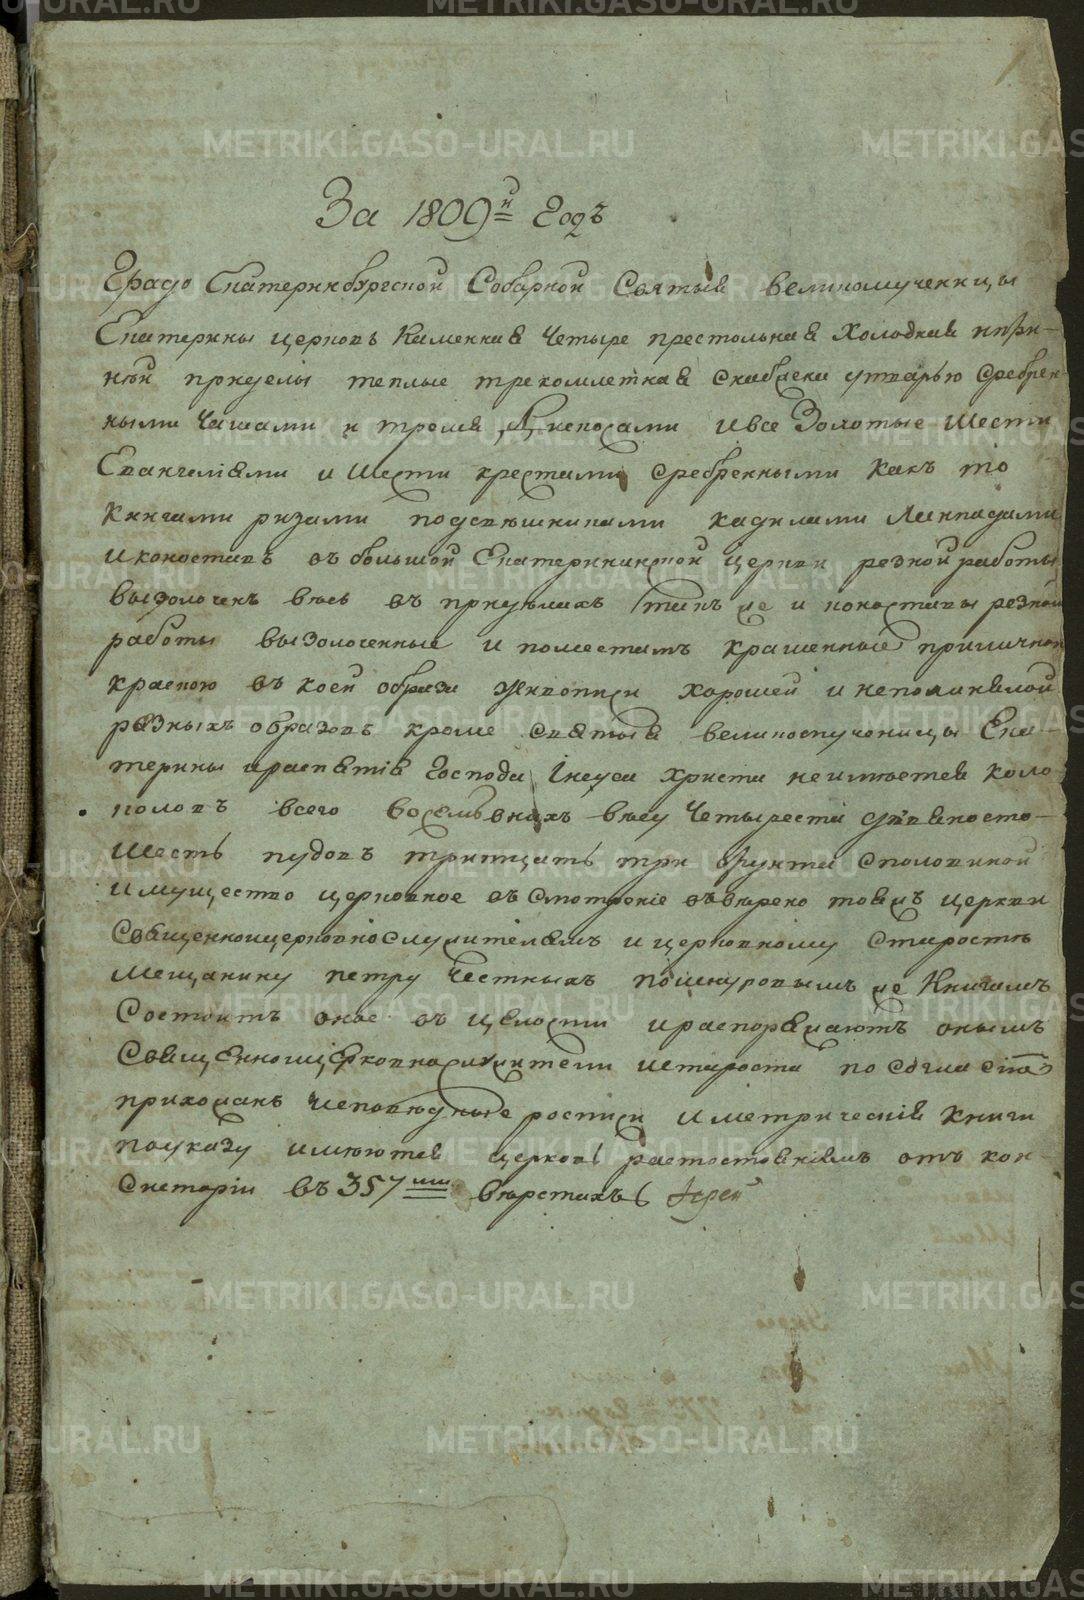 За 1809й Годъ
Градо Екатеринбургской Соборной Святыя великомученицы
Екатерины церковь Каменная Четыре престольная Холодная
приделы теплые снабдена утварью сребрен-
ными Чашами и тремя дискосами и все Золотые Шести
Евангелиями и Шести крестами сребренными какъ то
Книгами ризами подсвѣшниками кадилами Лампадами
иконоставъ въ большой Екатерининской церкви резной работы
вызолоченъ весь въ придѣлахъ такъ же иконоставы резной
работы вызолоченные и полместамъ крашенные приличной
краскою въ коей образа живописи хорошей и неполинялой
резныхъ образовъ кроме святыя великомученицы Ека-
терины и распятія Господа Іисуса Христа неимѣется коло-
коловъ всего восемь вних вѣсу Четыреста девяносто-
Шесть пудовъ тритцать три фунта споловиной
Имущество церковное въ смотреніе ввѣрено тоямъ церкви
Священноицерковнослужителямъ и церковному Старостѣ
Мещанину петру Честныхъ пошнуровымъ же Книгамъ
Состоитъ оное въ целости и распоряжаютъ онымъ
Священноицерковнослужители истароста по согласію
прихожанъ исповѣдные росписи и метрическія книги
поуказу имѣются церковь растостояніемъ отъ кон-
систоріи въ 357ми вѣрстахъ Іерей
METRIKI.GASO-URAL.RU